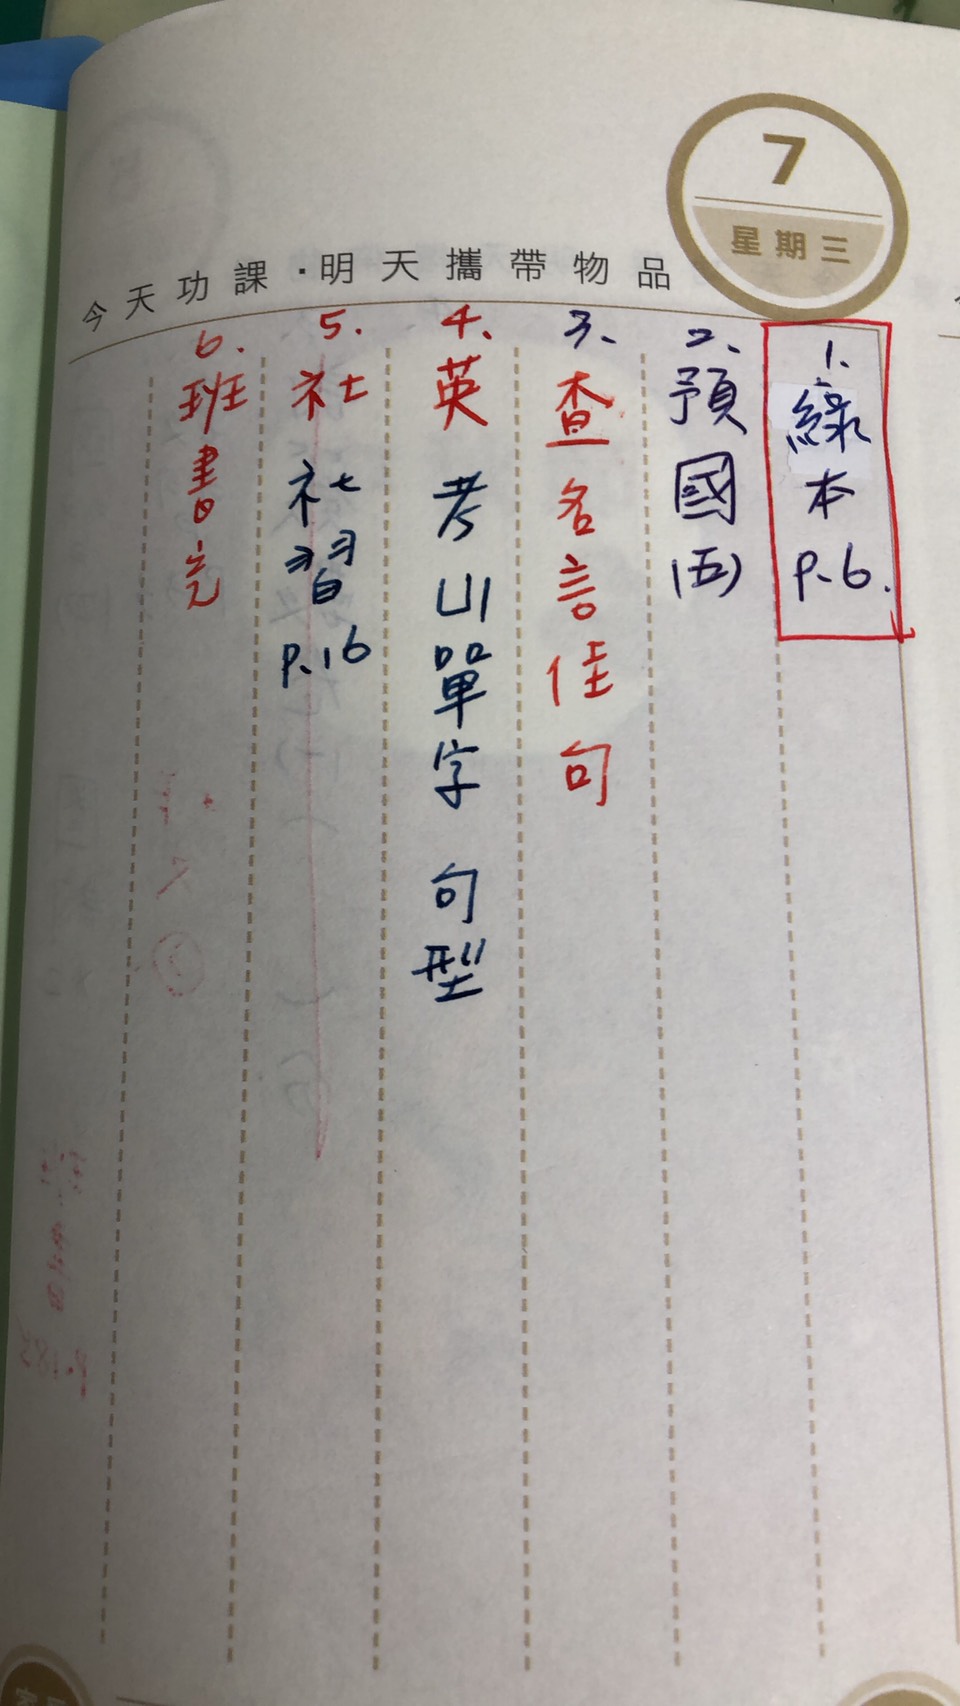 7
星期三
今天功課·明天攜帶物品
1. 綠本 p.6.
2、預國(五)
3、查名言佳句
4、英 考 U1單字 句型
5. 社 社習 p.16
6. 班書完